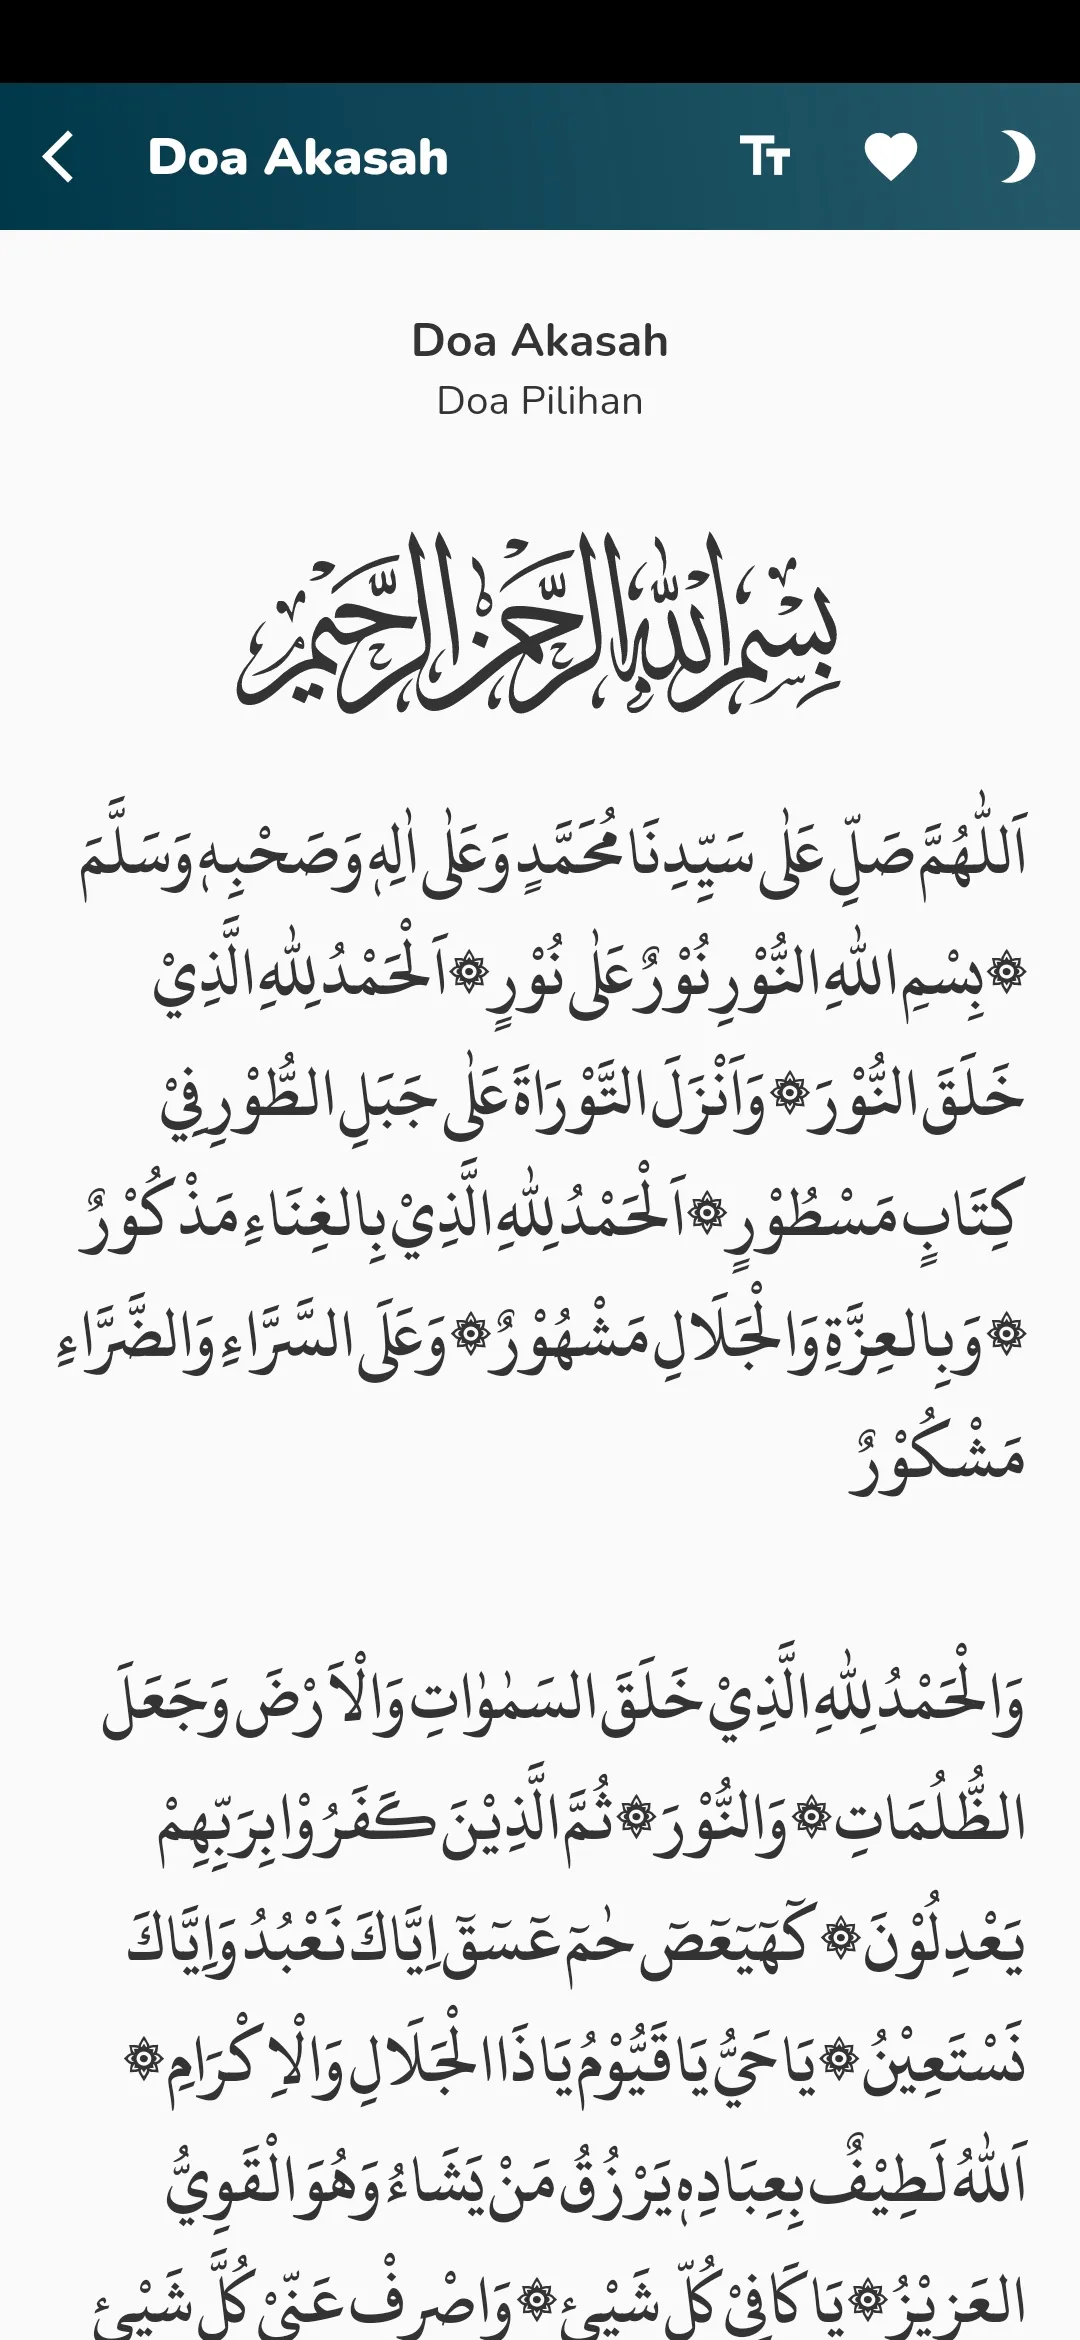 Doa Akasah
Doa Akasah
Doa Pilihan
بِسْمِ اللّٰهِ الرَّحْمٰنِ الرَّحِيْمِ
اَللّٰهُمَّ صَلِّ عَلٰى سَيِّدِنَا مُحَمَّدٍ وَعَلٰى اٰلِهٖ وَصَحْبِهٖ وَسَلَّمَ
۞بِسْمِ اللّٰهِ النُّوْرِ نُوْرٌ عَلٰى نُوْرٍ۞اَلْحَمْدُ لِلّٰهِ الَّذِيْ
خَلَقَ النُّوْرَ۞وَاَنْزَلَ التَّوْرَاةَ عَلٰى جَبَلِ الطُّوْرِ فِيْ
كِتَابٍ مَسْطُوْرٍ۞اَلْحَمْدُ لِلّٰهِ الَّذِيْ بِالغِنَاءِ مَذْكُوْرٌ
۞وَبِالعِزَّةِ وَالْجَلَالِ مَشْهُوْرٌ۞وَعَلَى السَّرَّاءِ وَالضَّرَّاءِ
مَشْكُوْرٌ
وَالْحَمْدُ لِلّٰهِ الَّذِيْ خَلَقَ السَمٰوٰاتِ وَالْاَرْضَ وَجَعَلَ
الظُّلُمَاتِ۞وَالنُّوْرَ۞ثُمَّ الَّذِيْنَ كَفَرُوْا بِرَبِّهِمْ
يَعْدِلُوْنَ۞كٓهٰيٰعٓصٓ حٰمٓ عٓسٓقٓ اِيَّاكَ نَعْبُدُ وَاِيَّاكَ
نَسْتَعِيْنُ۞يَا حَيُّ يَا قَيُّوْمُ يَا ذَا الْجَلَالِ وَالْاِكْرَامِ۞
اَللّٰهُ لَطِيْفٌ بِعِبَادِهٖ يَرْزُقُ مَنْ يَشَاءُ وَهُوَ الْقَوِيُّ
العَزِيْزُ۞يَا كَافِيْ كُلِّ شَيْئٍ۞وَاصْرِفْ عَنِّيْ كُلَّ شَيْئٍ